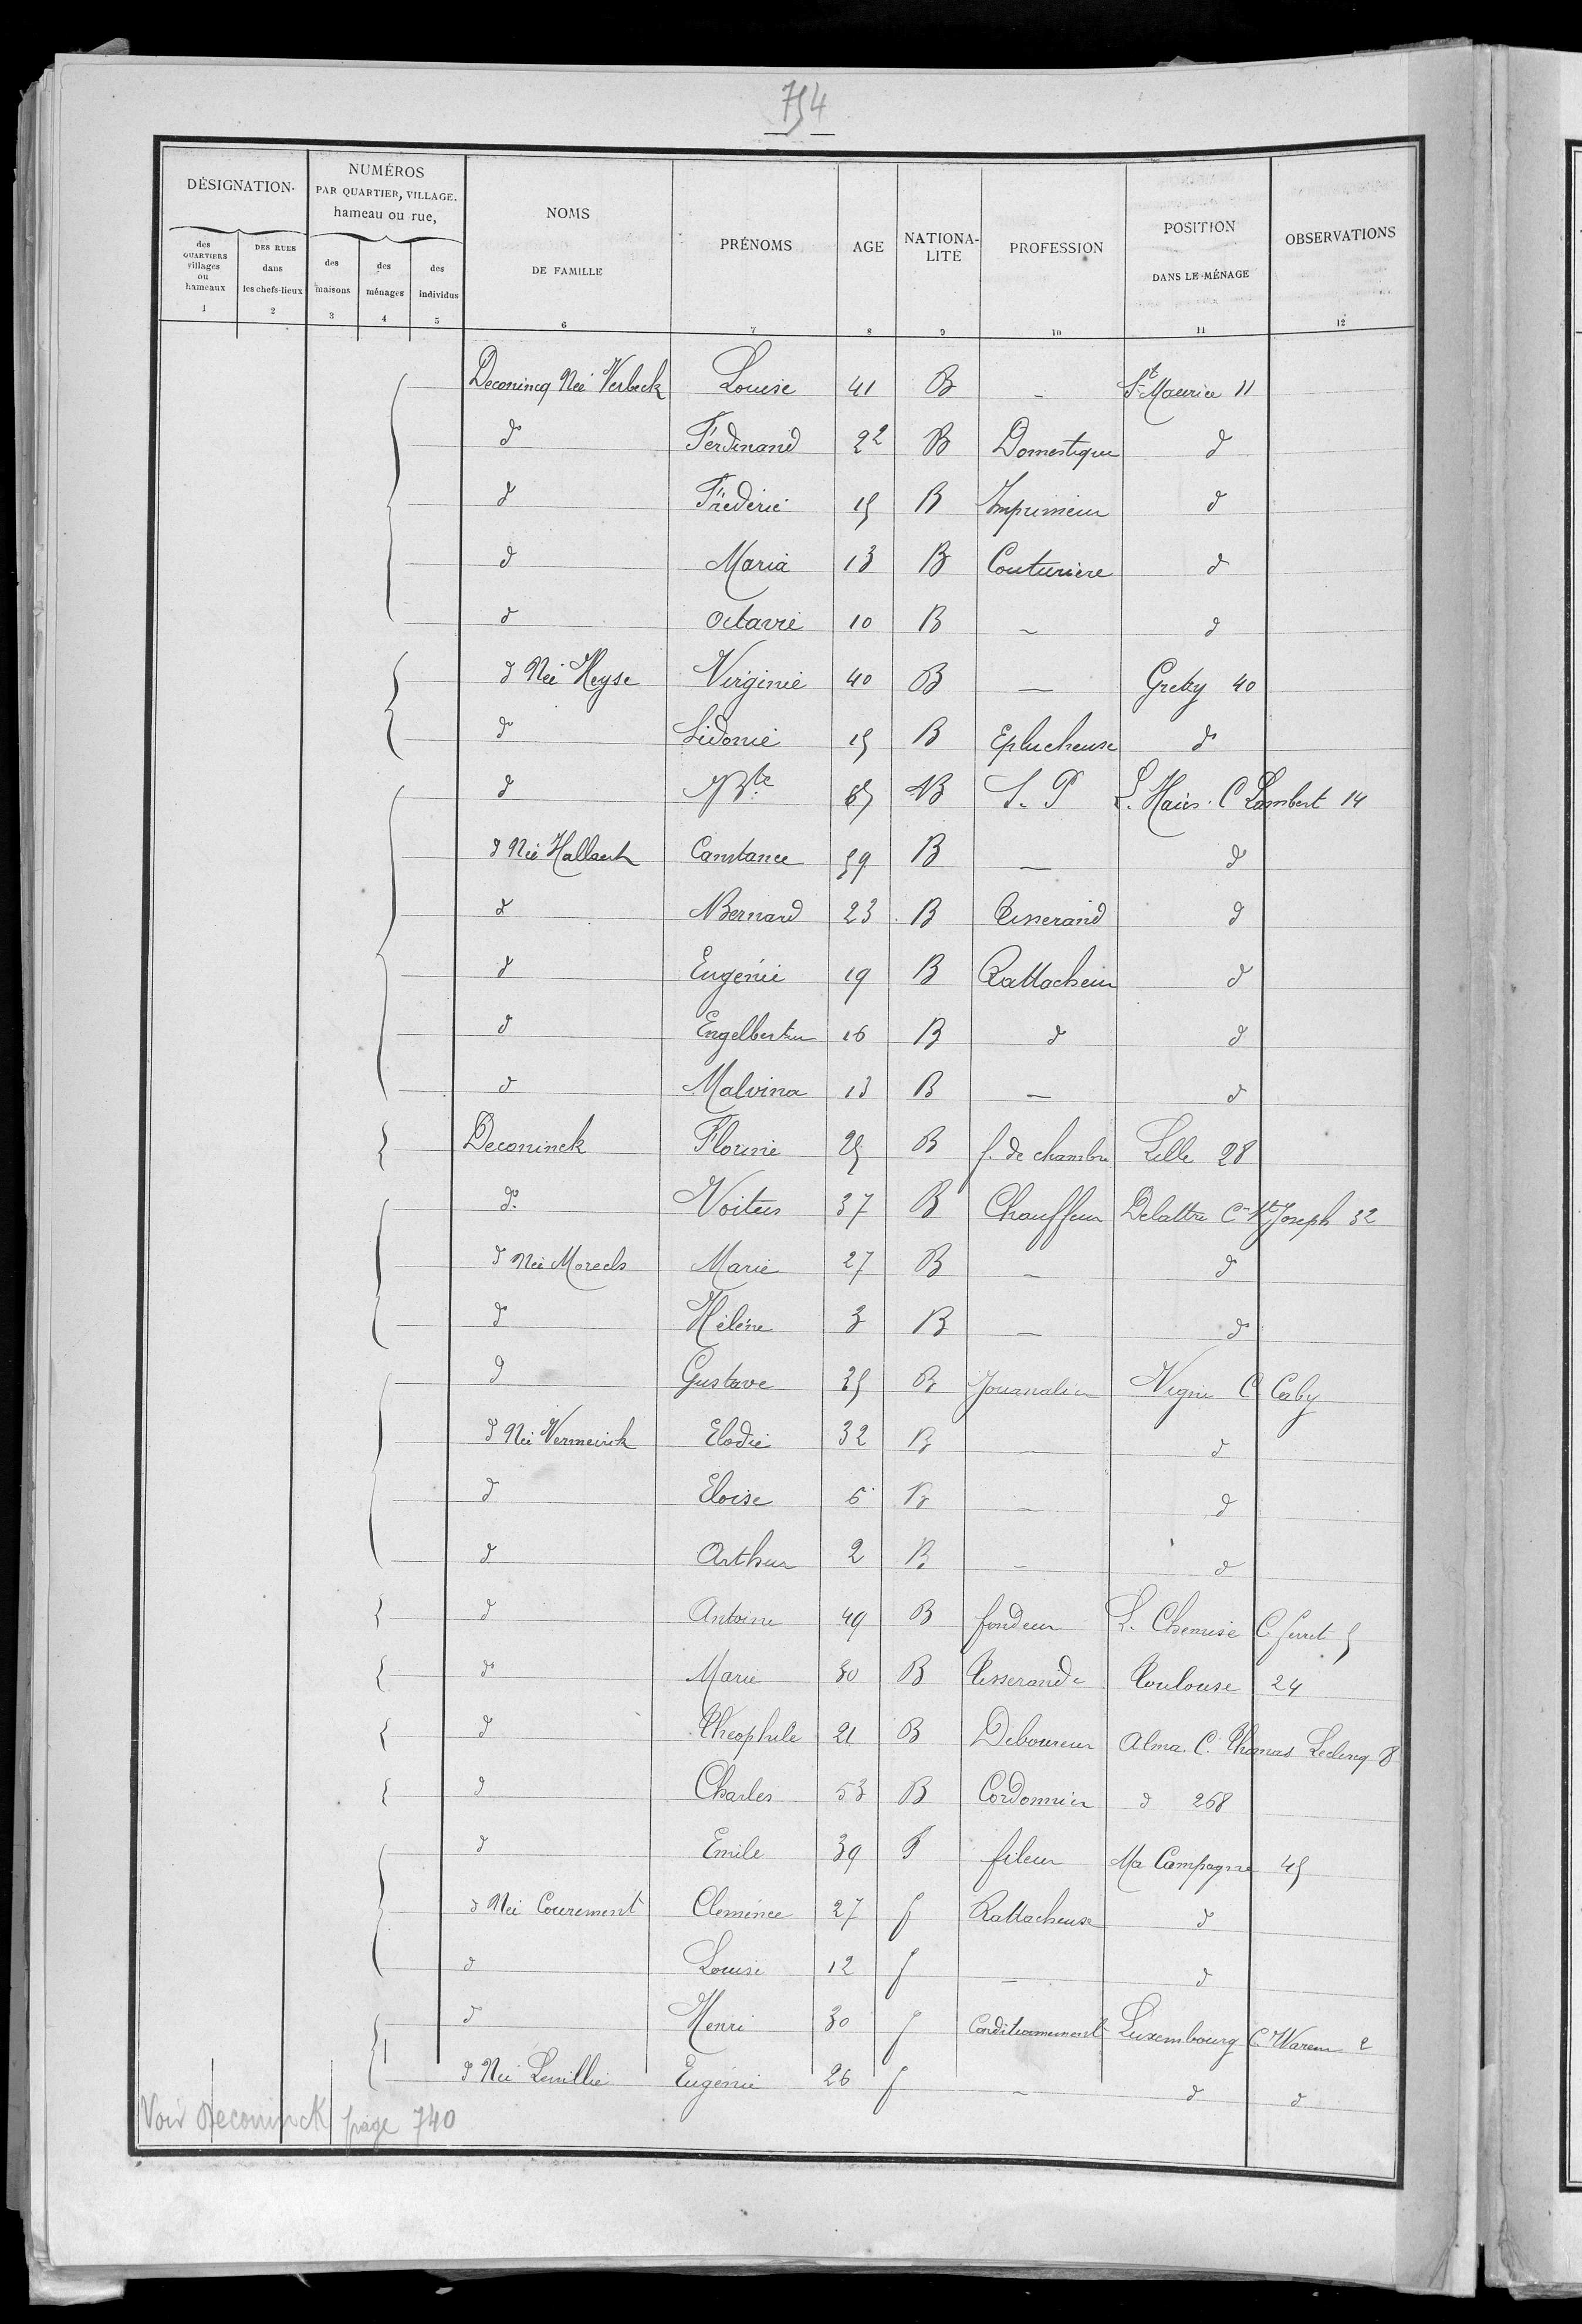 754
DÉSIGNATION. NUMÉROS PAR QUARTIER, VILLAGE. hameau ou rue, NOMS DE FAMILLE PRÉNOMS AGE NATIONA-LITE PROFESSION POSITION DANS LE MÉNAGE OBSERVATIONS
des QUARTIERS villages ou hameaux DES RUES dans les chefs-lieux des maisons des ménages des individus
1 2 3 4 5 6 7 8 9 10 11 12
Deconincq Née Verbeck Louise 41 B - St Maurice 11
d° Ferdinand 22 B Domestique d
d Fréderic 15 B Imprimeur d
d Maria 13 B Couturiere d
d Octavie 10 B - d
d Née Heyse Virginie 40 B - Gretry 40
d° Sidonie 15 B Eplucheuse d°
d JBte 65 B S. P L. Haies. C Lambert 14
d Née Hallaert Constance 59 B - d
d Bernard 23 B Tisserand d
d Eugénie 19 B Rattacheur d
d Engelbertus 16 B d d
d Malvina 13 B - d
Deconinck Florine 25 B f. de chambre Lille 28
d°. 37 B Chauffeur Delattre C St Joseph 32
d Née Marie 27 B - d
d° Hélène 3 B - d°
d Gustave 35 B Journalier Vigne C
d Née Vermeirck Elodie 32 B - d
d Eloise 6 B - d
d Arthur 2 B - d
d Antoine 49 B fondeur L. Chemise C. Ferret 5
d° Marie 30 B Tisserande Toulouse 24
d Théophile 21 B Deboureur Alma. C. Thomas Leclercq 8
d Charles 53 B Cordonnier d 268
d Emile 39 F fileur Ma Campagne 45
d Née Courement Clemence 27 f Rattacheuse d
d Louise 12 f - d
d Henri 30 f Conditionnement Luxembourg C. Warein 2
d Née Eugénie 26 f - d d
Voir Deconinck page 740